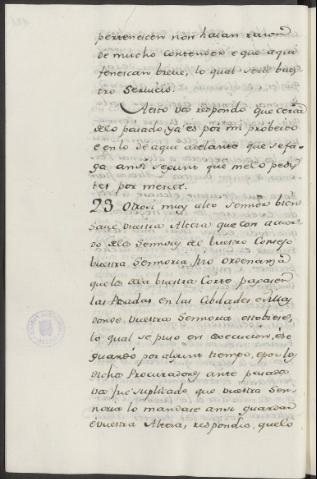 pertenescen non haian razon
de mucho contender e que aqui
fenescan breve, lo qual será vues
tro servicio.
Aesto vos respondo que cerca
delo pasado, ya es por mi probeido
e en lo de aqui adelante que se fa
ga ansi segunt que melo pedis
tes por merced.
23 Otrosi muy alto señor bien
save vuestra Alteza que con acuer
do delos Señores de vuestro Consejo
vuestra Señoria fizo ordenanza
quelos dela vuestra Corte pagasen
las Posadas en las Cibdades e Villas
donde vuestra Señoria estobiese,
lo qual se puso en execucion, é se
guardó por algunt tiempo, é por los
dichos Procuradores ante pasado
vos fue suplicado que vuestra Sen
noria lo mandase ansi guardar
é vuestra Alteza, respondio, quelo